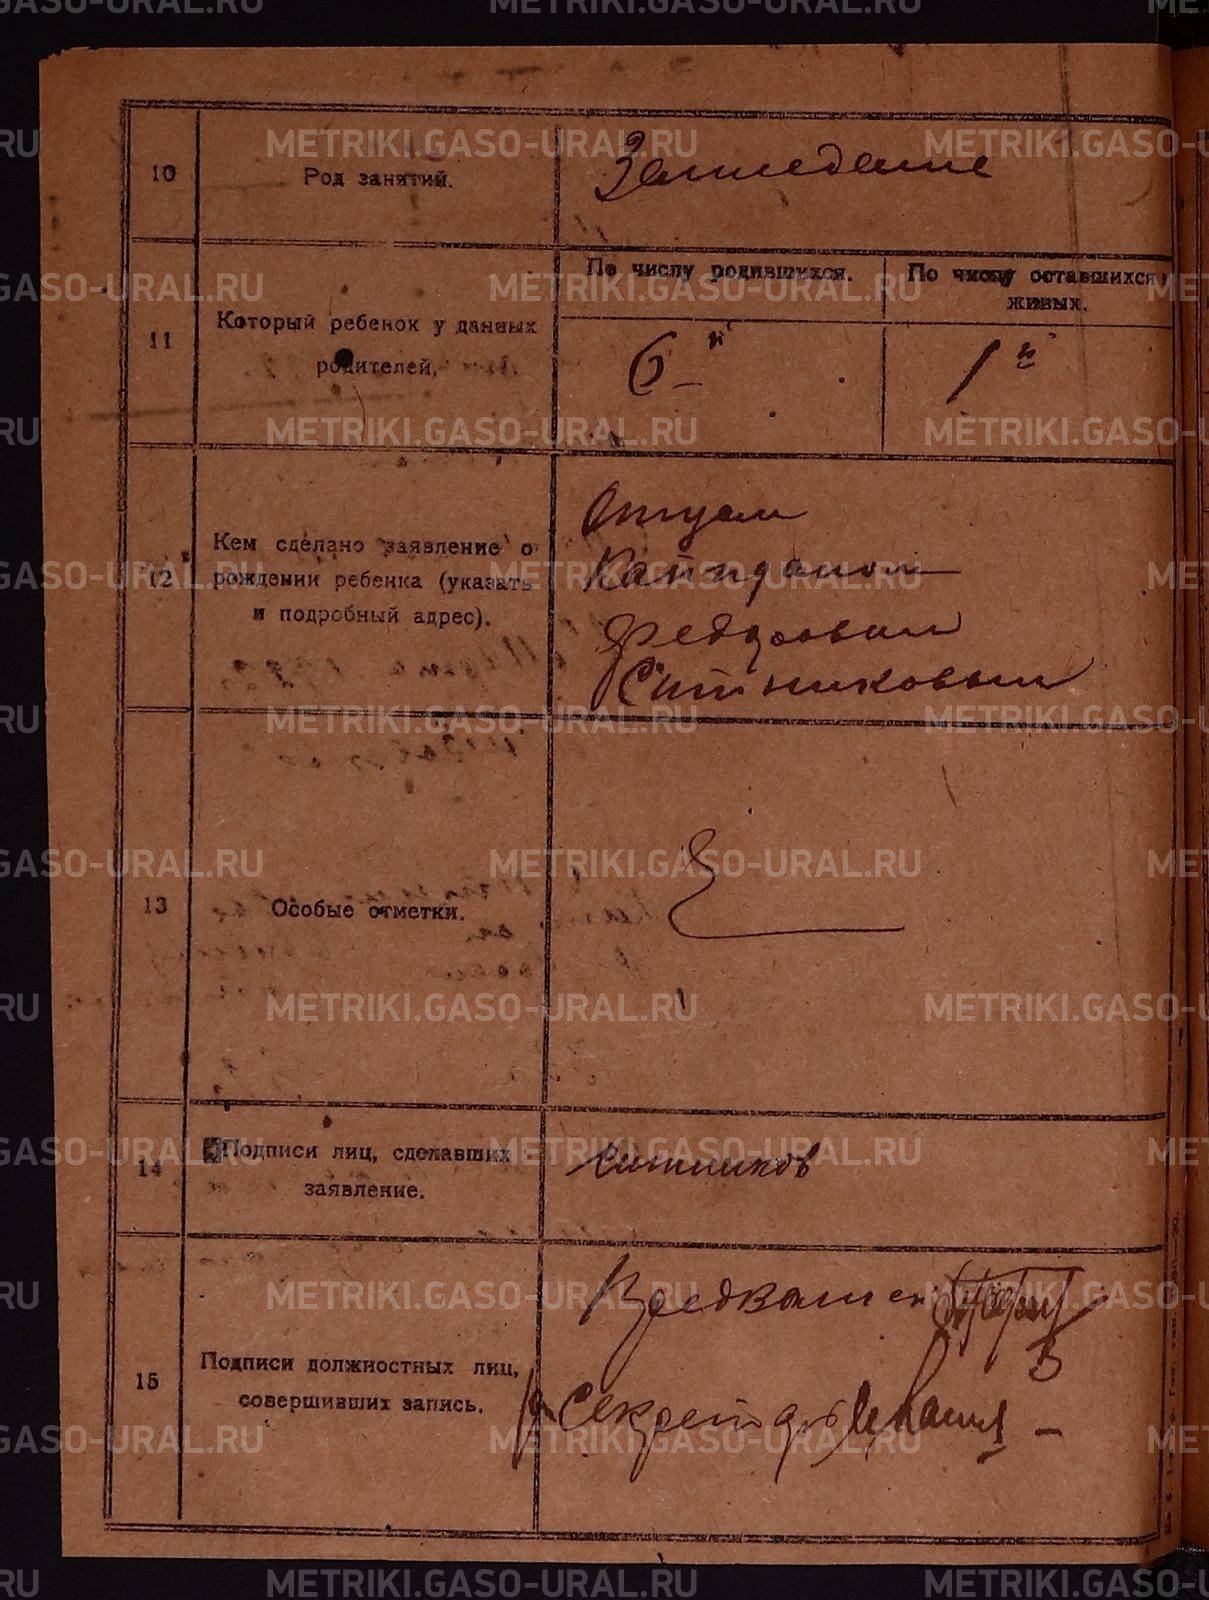 METRIKI.GASO-URAL.RU
10
Род занятий.
Земледелие
11
Который ребенок у данных
родителей,
По числу родившихся.
6й
По числу оставшихся
живых.
1й
12
Кем сделано заявление о
рождении ребенка (указать
и подробный адрес).
Отцом
Капидоном
Федоровым
Ситниковым
13
Особые отметки.
14
Подписи лиц, сделавших
заявление.
Ситников
15
Подписи должностных лиц,
совершивших запись.
Секретарь